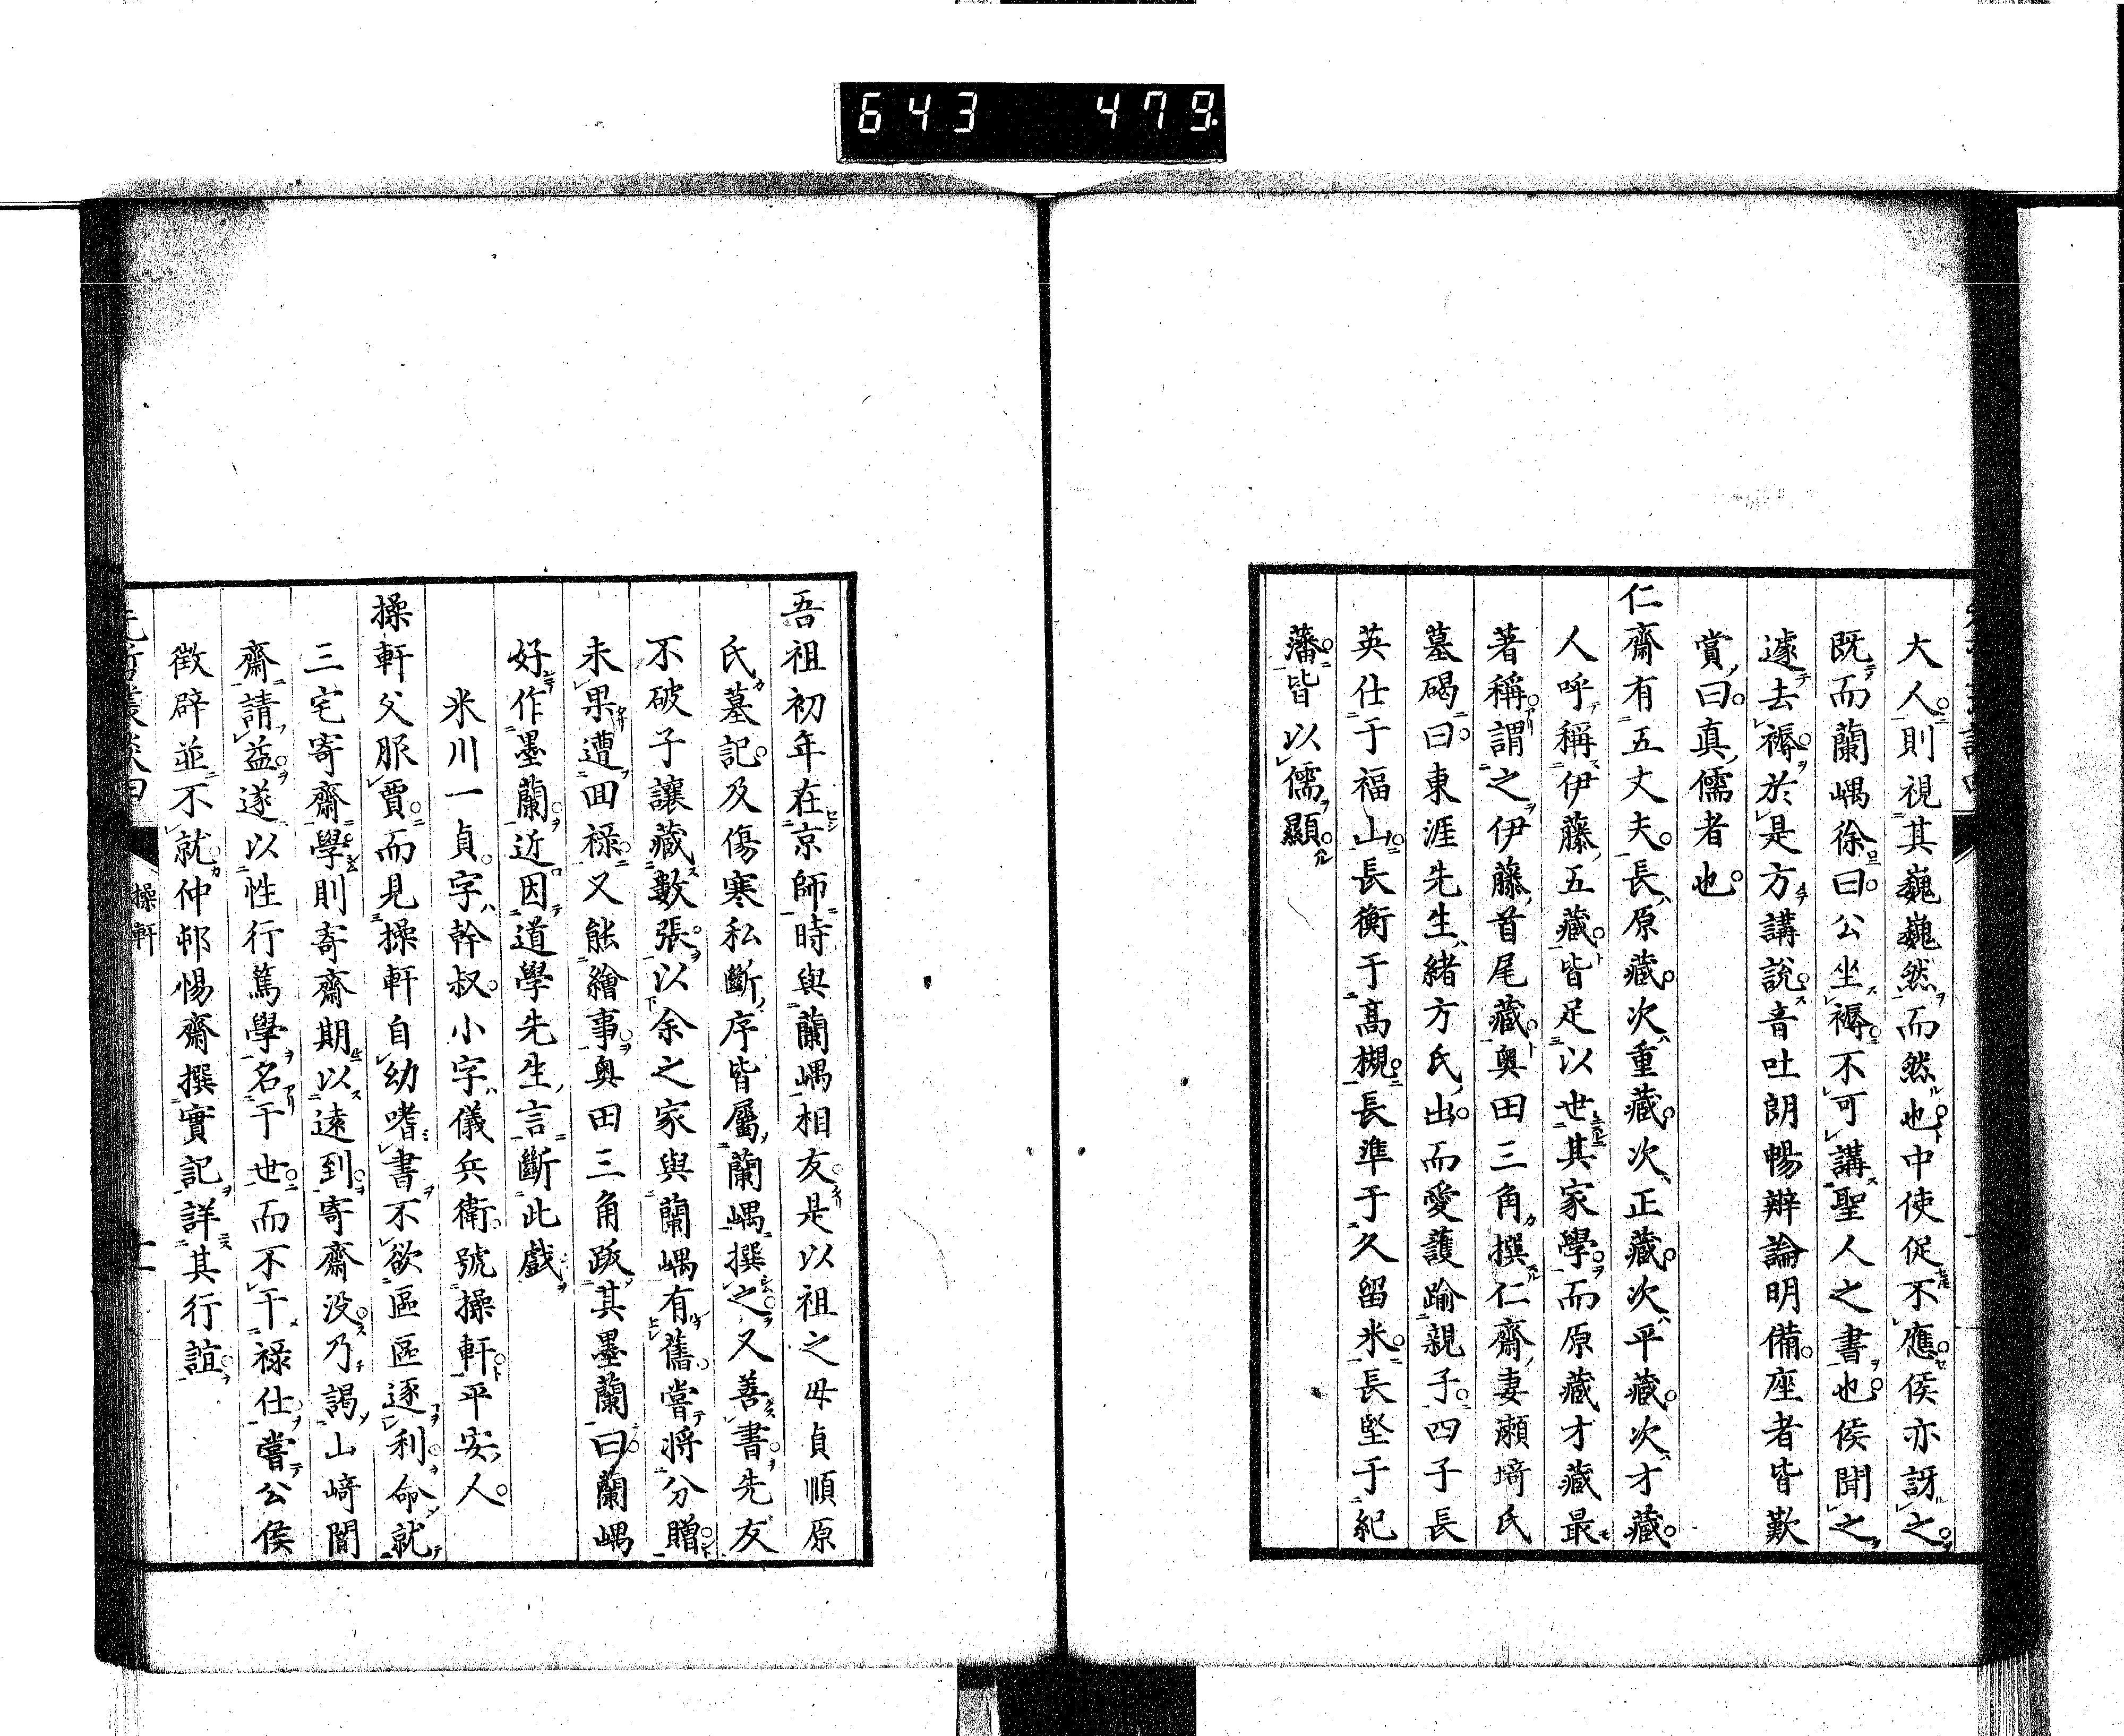 643 479
大人則視其巍巍然而然也中使促不應侯亦訝之
既而蘭嵎徐曰公坐褥不可講聖人之書也侯聞之
遽去褥於是方講說音吐朗暢辯論明備座者皆歎
賞曰真儒者也
仁齋有五丈夫長原藏次重藏次正藏次平藏次才藏
人呼稱伊藤五藏皆足以世其家學而原藏才藏最
著稱謂之伊藤首尾藏奥田三角撰仁齋妻瀬﨑氏
墓碣曰東涯先生緒方氏出而愛護踰親子四子長
英仕于福山長衡于高槻長準于久留米長堅于紀
藩皆以儒顯
吾祖初年在京師時與蘭嵎相友是以祖之母貞順原
氏墓記及傷寒私斷序皆屬蘭嵎撰之又善書先友
不破子讓藏數張以余之家與蘭嵎有舊嘗將分贈
未果遭回祿又能繪事奥田三角跋其墨蘭曰蘭嵎
好作墨蘭近因道學先生言斷此戲
米川一貞字幹叔小字儀兵衛號操軒平安人
操軒父服賈而見操軒自幼嗜書不欲區區逐利命就
三宅寄齋學則寄齋期以遠到寄齋没乃謁山﨑闇
齋請益遂以性行篤學名于世而不干祿仕嘗公侯
徴辟並不就仲邨惕齋撰實記詳其行誼
先哲叢談四
操軒
十一